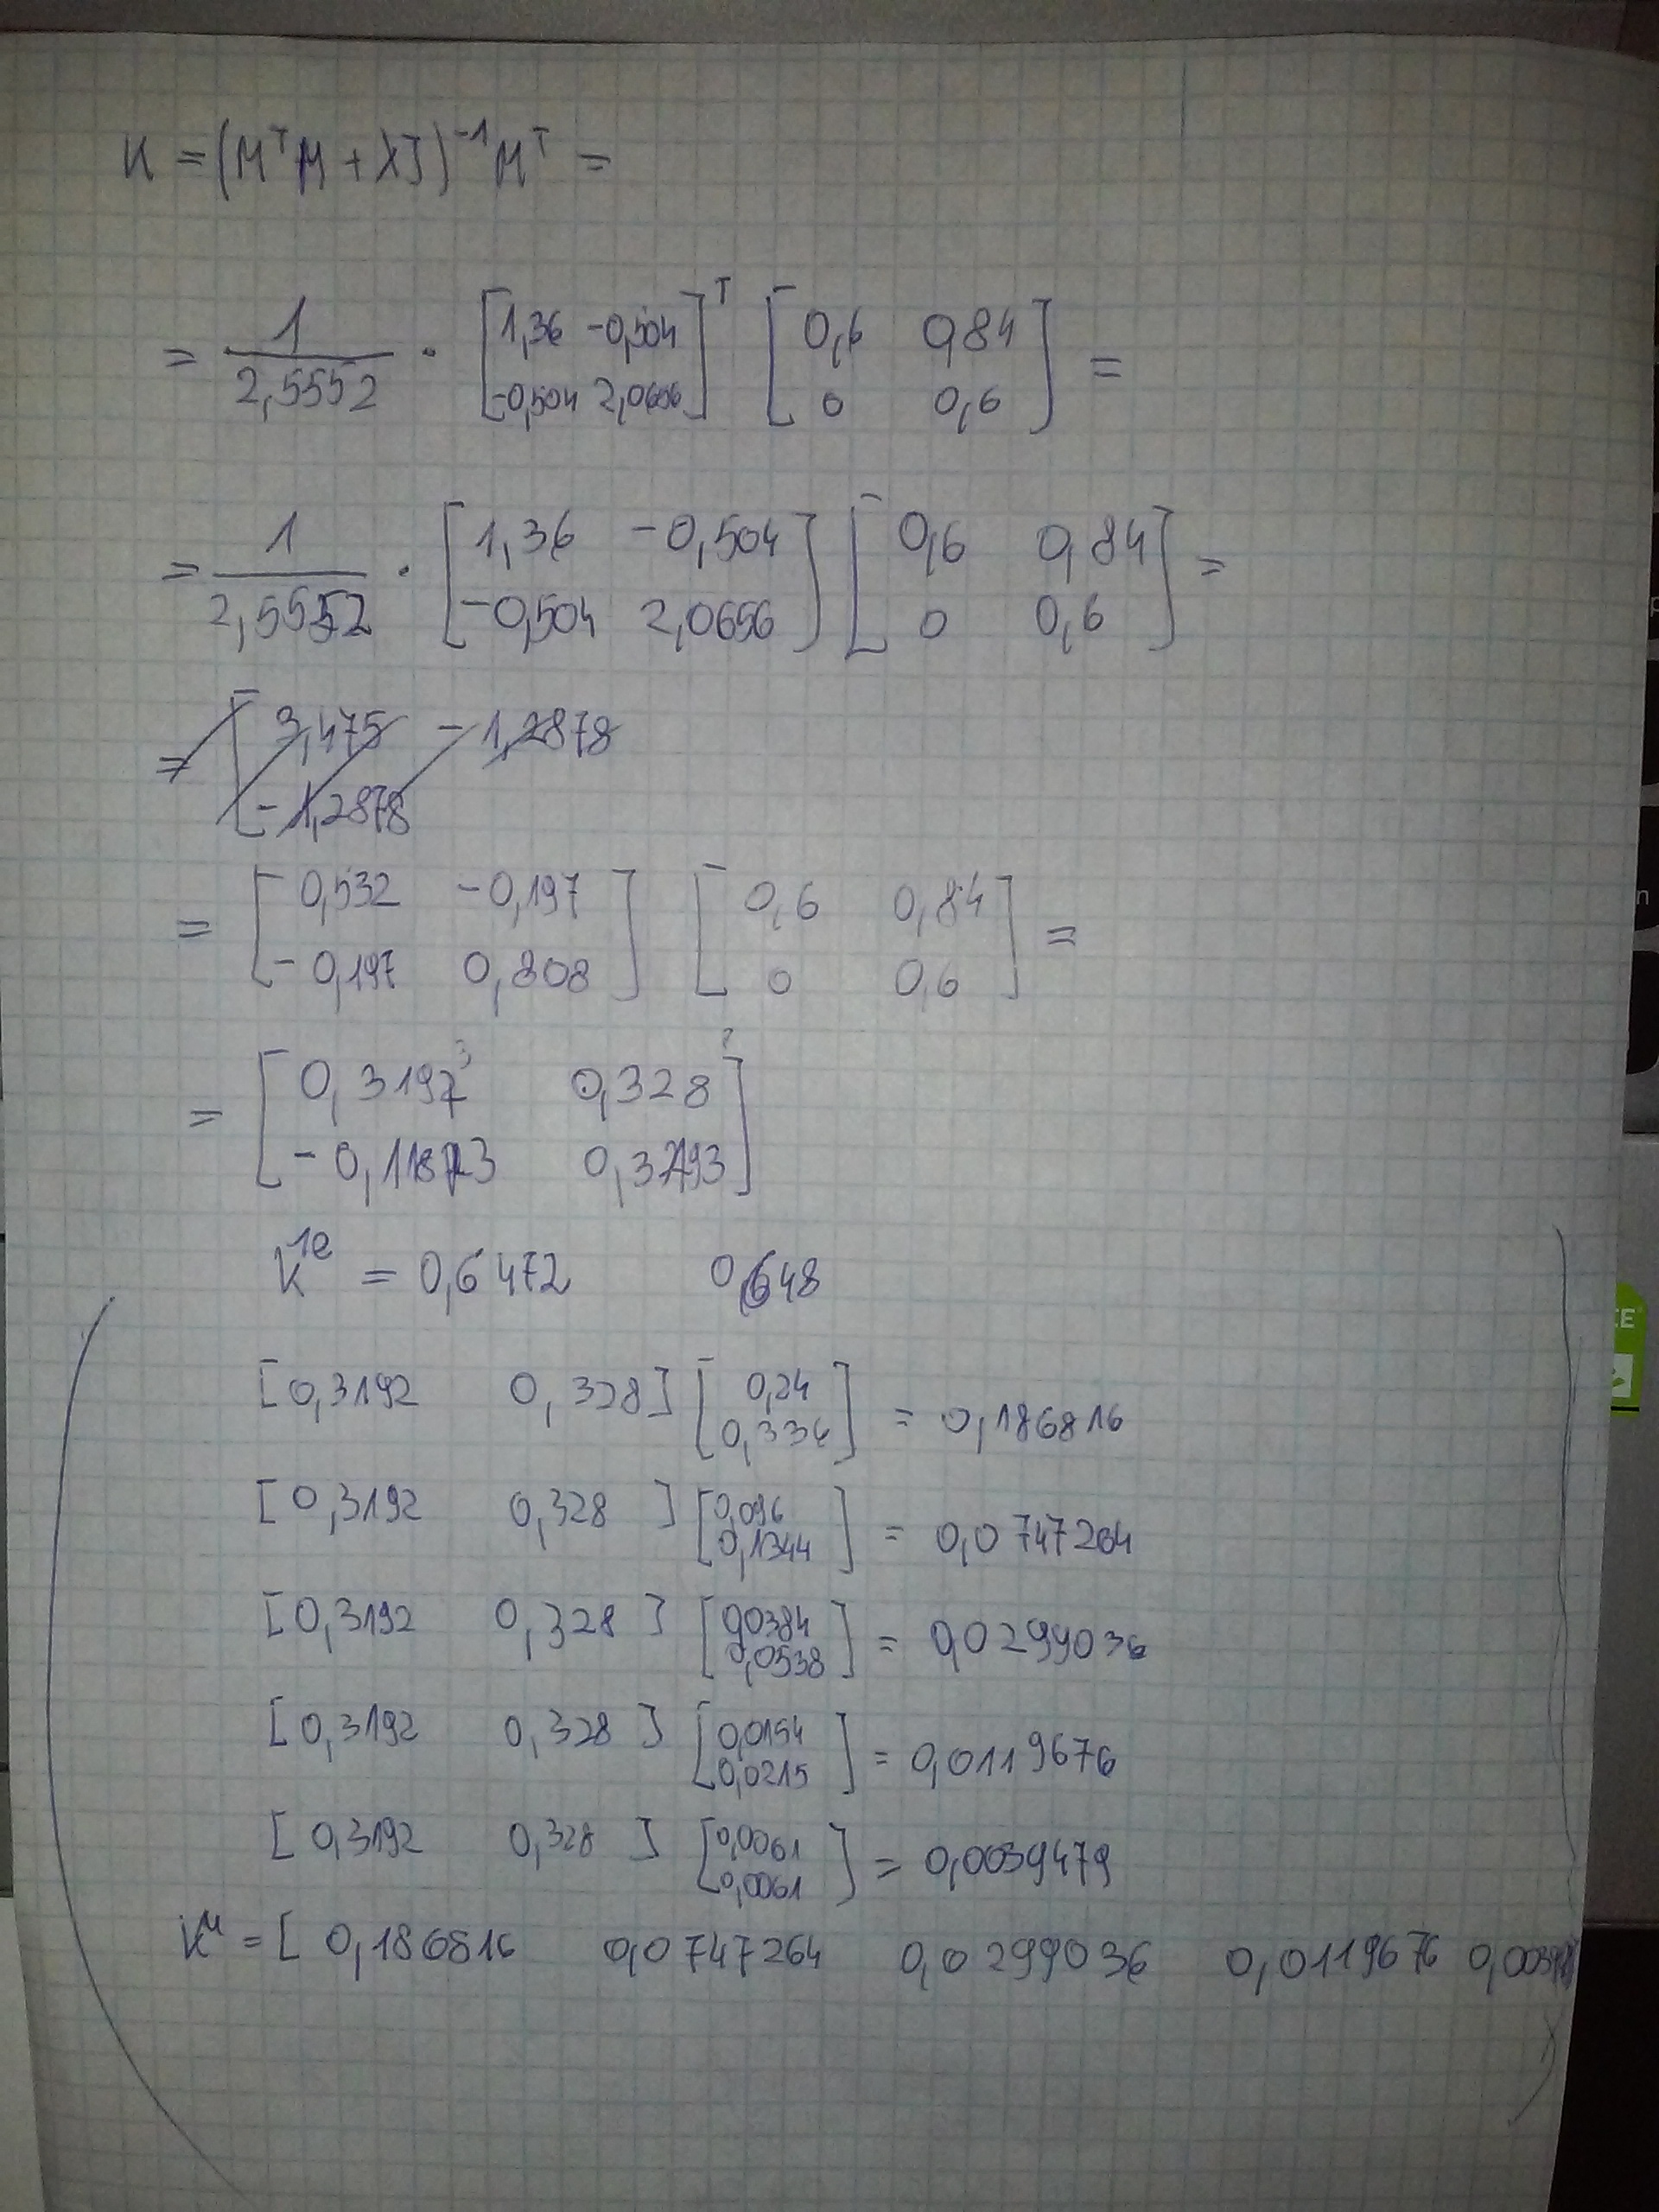 K = (M^T M + λI)^-1 M^T =
= 1/2,5552 · [1,36 -0,504; -0,504 2,0656]^T [0,6 0,84; 0 0,6] =
= 1/2,5552 · [1,36 -0,504; -0,504 2,0656] [0,6 0,84; 0 0,6] =
= [3,475 -1,2878; -1,2878
= [0,532 -0,197; -0,197 0,808] [0,6 0,84; 0 0,6] =
= [0,3193 0,328; 0,3193]
K^1e = 0,6472 0,648
[0,3192 0,328] [0,24; 0,336] = 0,186816
[0,3192 0,328] [0,096; 0,1344] = 0,0747264
[0,3192 0,328] [0,0384; 0,0538] = 0,0299036
[0,3192 0,328] [0,0154; 0,0215] = 0,0119676
[0,3192 0,328] [0,0061; 0,0061] = 0,0039479
K^u = [ 0,186816 0,0747264 0,0299036 0,0119676